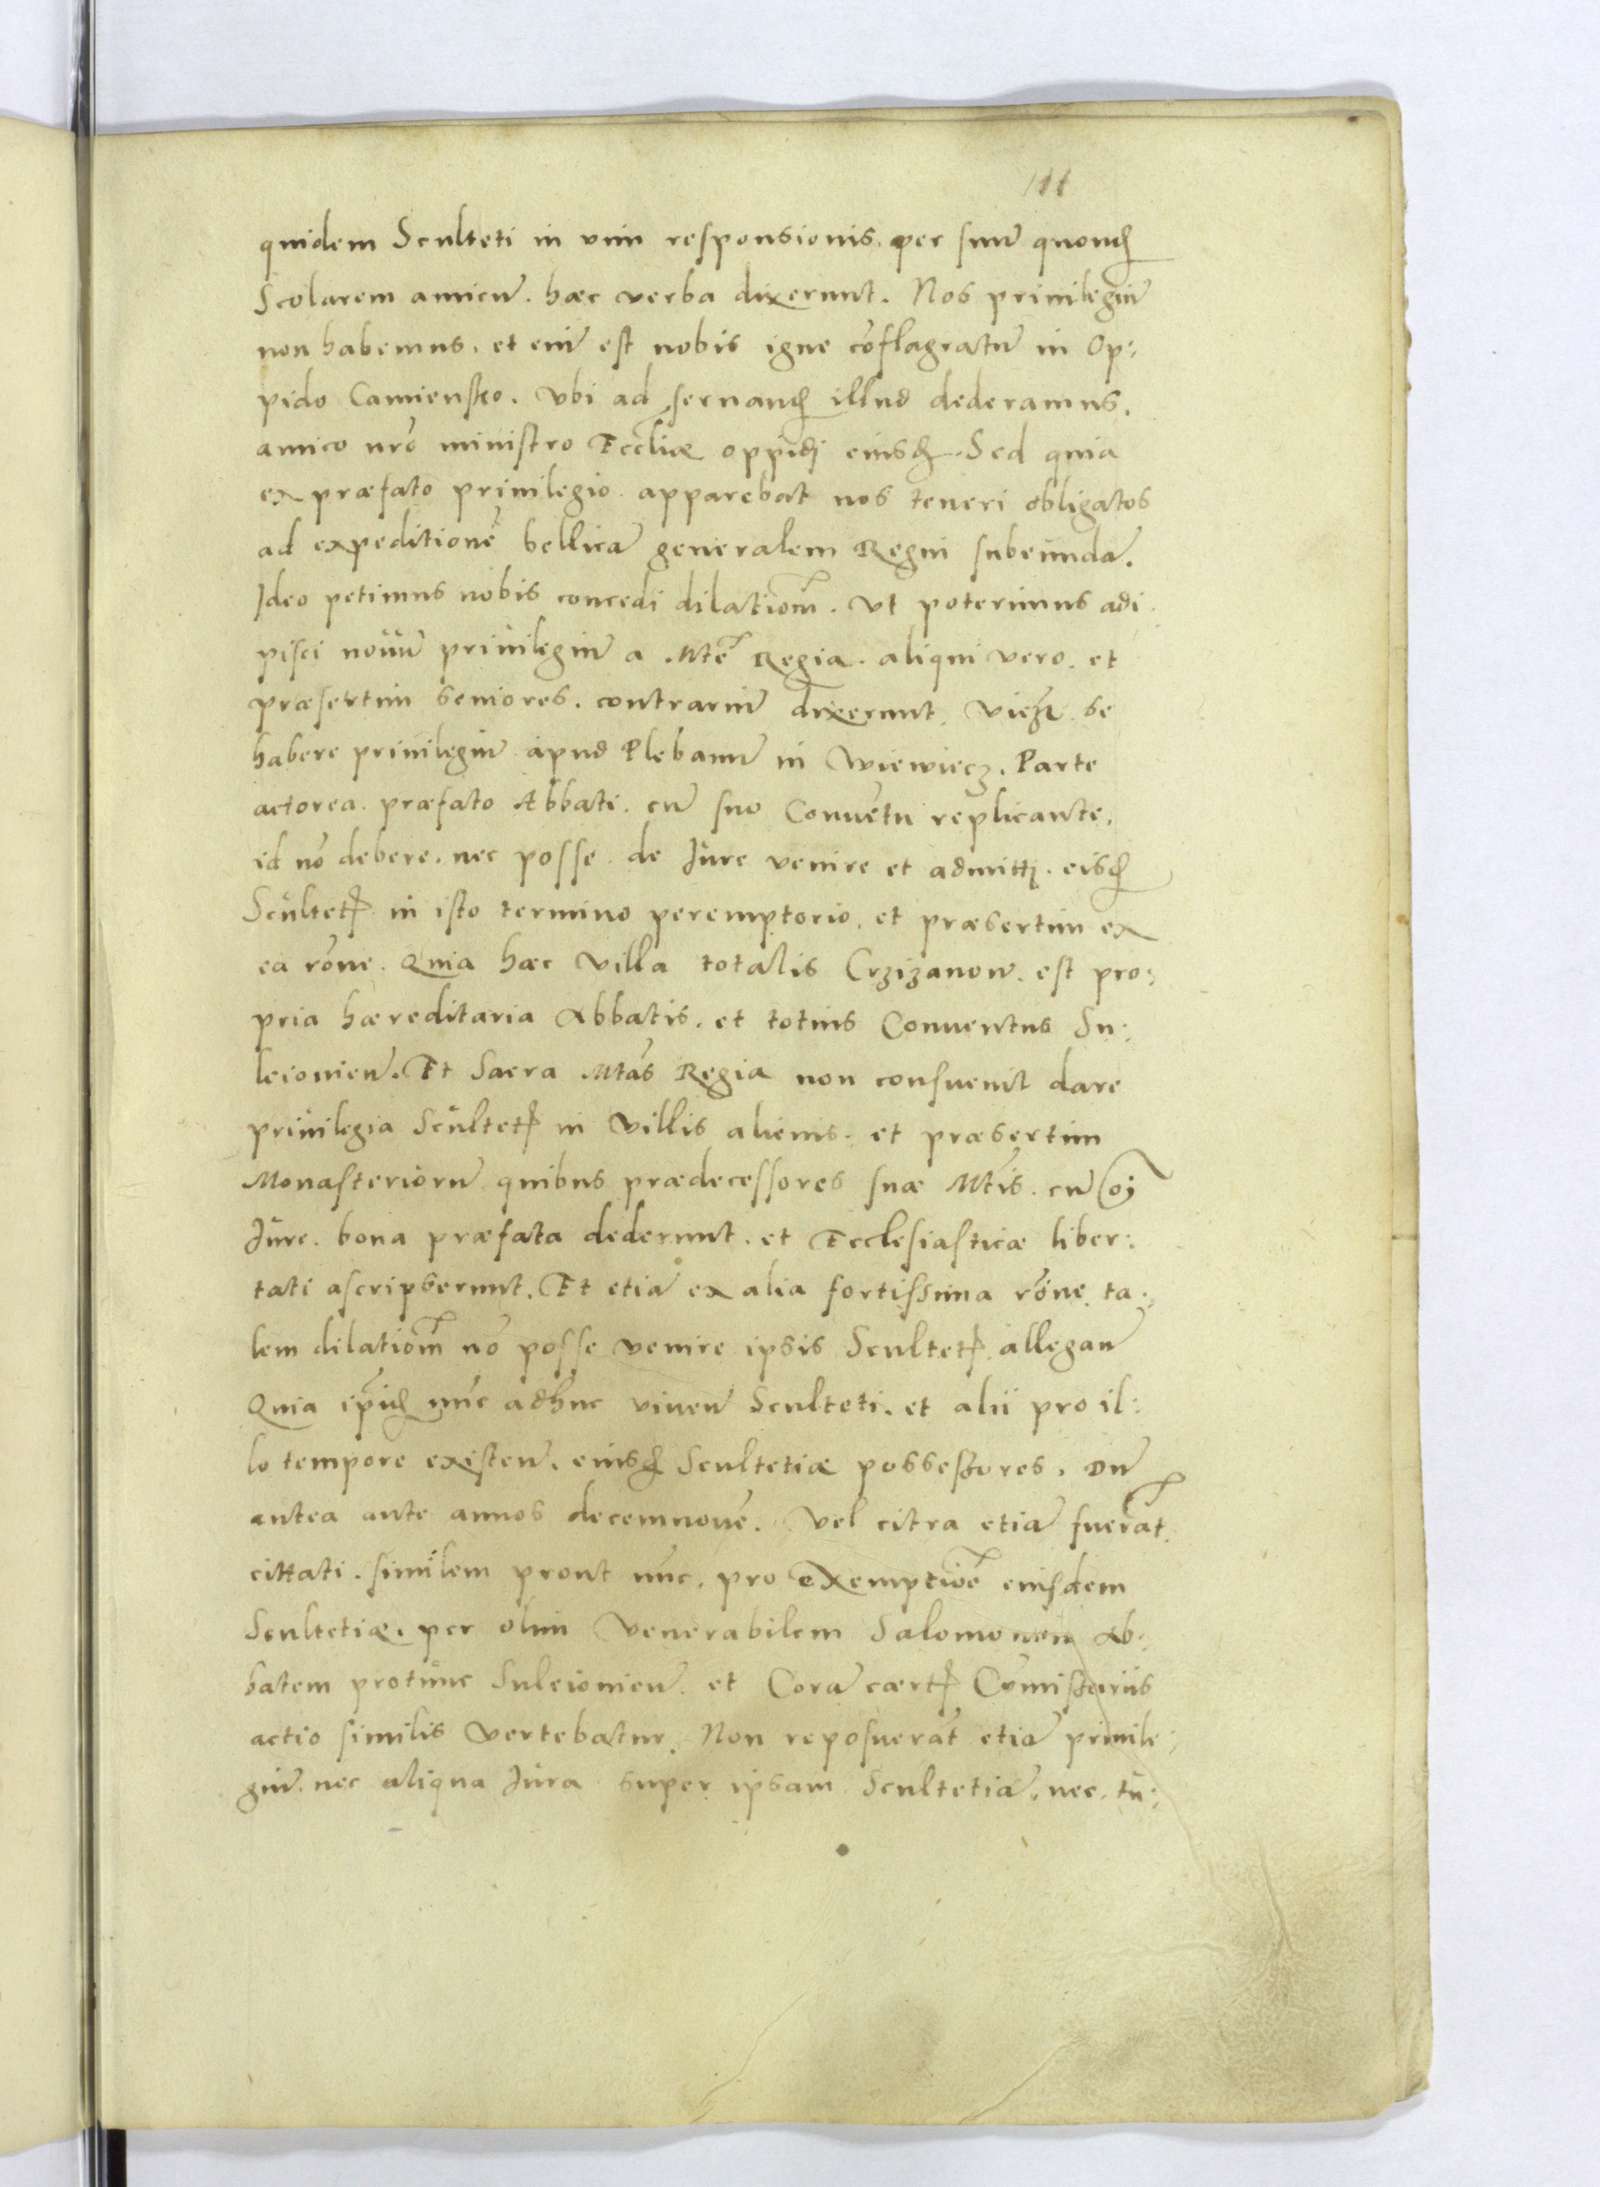 111
quidem Sculteti in vim responsionis. per suũ quondã
Scolarem amicũ. hæc verba dixerunt. Nos priuilegiũ
non habemus. et enĩ est nobis igne cõflagratũ in Op:
pido Camiensko. Vbi ad seruand̃ illud dederamus.
amico nrõ ministro Eccl̃iæ oppidi eiusd̃. Sed quia
ex præfato priuilegio. apparebat nos teneri obligatos
ad expeditionẽ bellicã generalem Regni subeundã.
Ideo petimus nobis concedi dilatiõm. Vt poterimus adi
pisci nouũ priuilegiũ a. Mtẽ Regia. aliqui vero. et
præsertim seniores. contrariũ dixerunt. vidz se
habere priuilegiũ apud Plebanũ in Wiewiecz. Parte
actorea. præfato Abbati. cũ suo Conuẽtu replicante.
id nõ debere. nec posse de Iure venire et admitti. eisd̃
Scultet̃ in isto termino peremptorio. et præsertim ex
ea rõne. Quia hæc villa totalis Crzizanow. est pro:
pria hæreditaria Abbatis. et totius Conuentus Su:
leiouien̄. Et Sacra Mtãs Regia non consueuit dare
priuilegia Scultet̃ in Villis alienis. et præsertim
Monasteriorũ quibus prædecessores suæ Mtĩs. cũ oĩ
Iure. bona præfata dederunt. et Ecclesiasticæ liber:
tati ascripserunt. Et etiã ex alia fortissima rõne. ta:
lem dilatiõm nõ posse venire ipsis Scultet̃. allegan̄
Quia ipĩd̃ nũc adhuc viuen̄ Sculteti. et alii pro il:
lo tempore existen̄. eiusd̃ Scultetiæ possessores. Dũ
antea ante annos decemnouẽ. Vel citra etiã fuerãt
cittati. similem prout nũc. pro exemptiõe eiusdem
Scultetiæ. per olim Venerabilem Salomonem Ab:
batem protũnc Suleiouien̄. et Corã cæert̃ Cõmissariis
actio similis vertebatur. Non reposuerãt etiã priuile:
giũ. nec aliqua Iura super ipsam Scultetiã. nec. tũ: